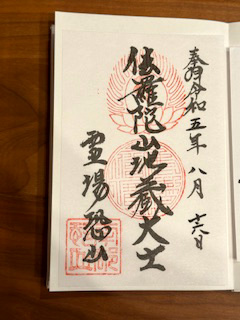 奉拝 令和五年 八月 日
佉羅陀山地蔵大士
霊場恐山